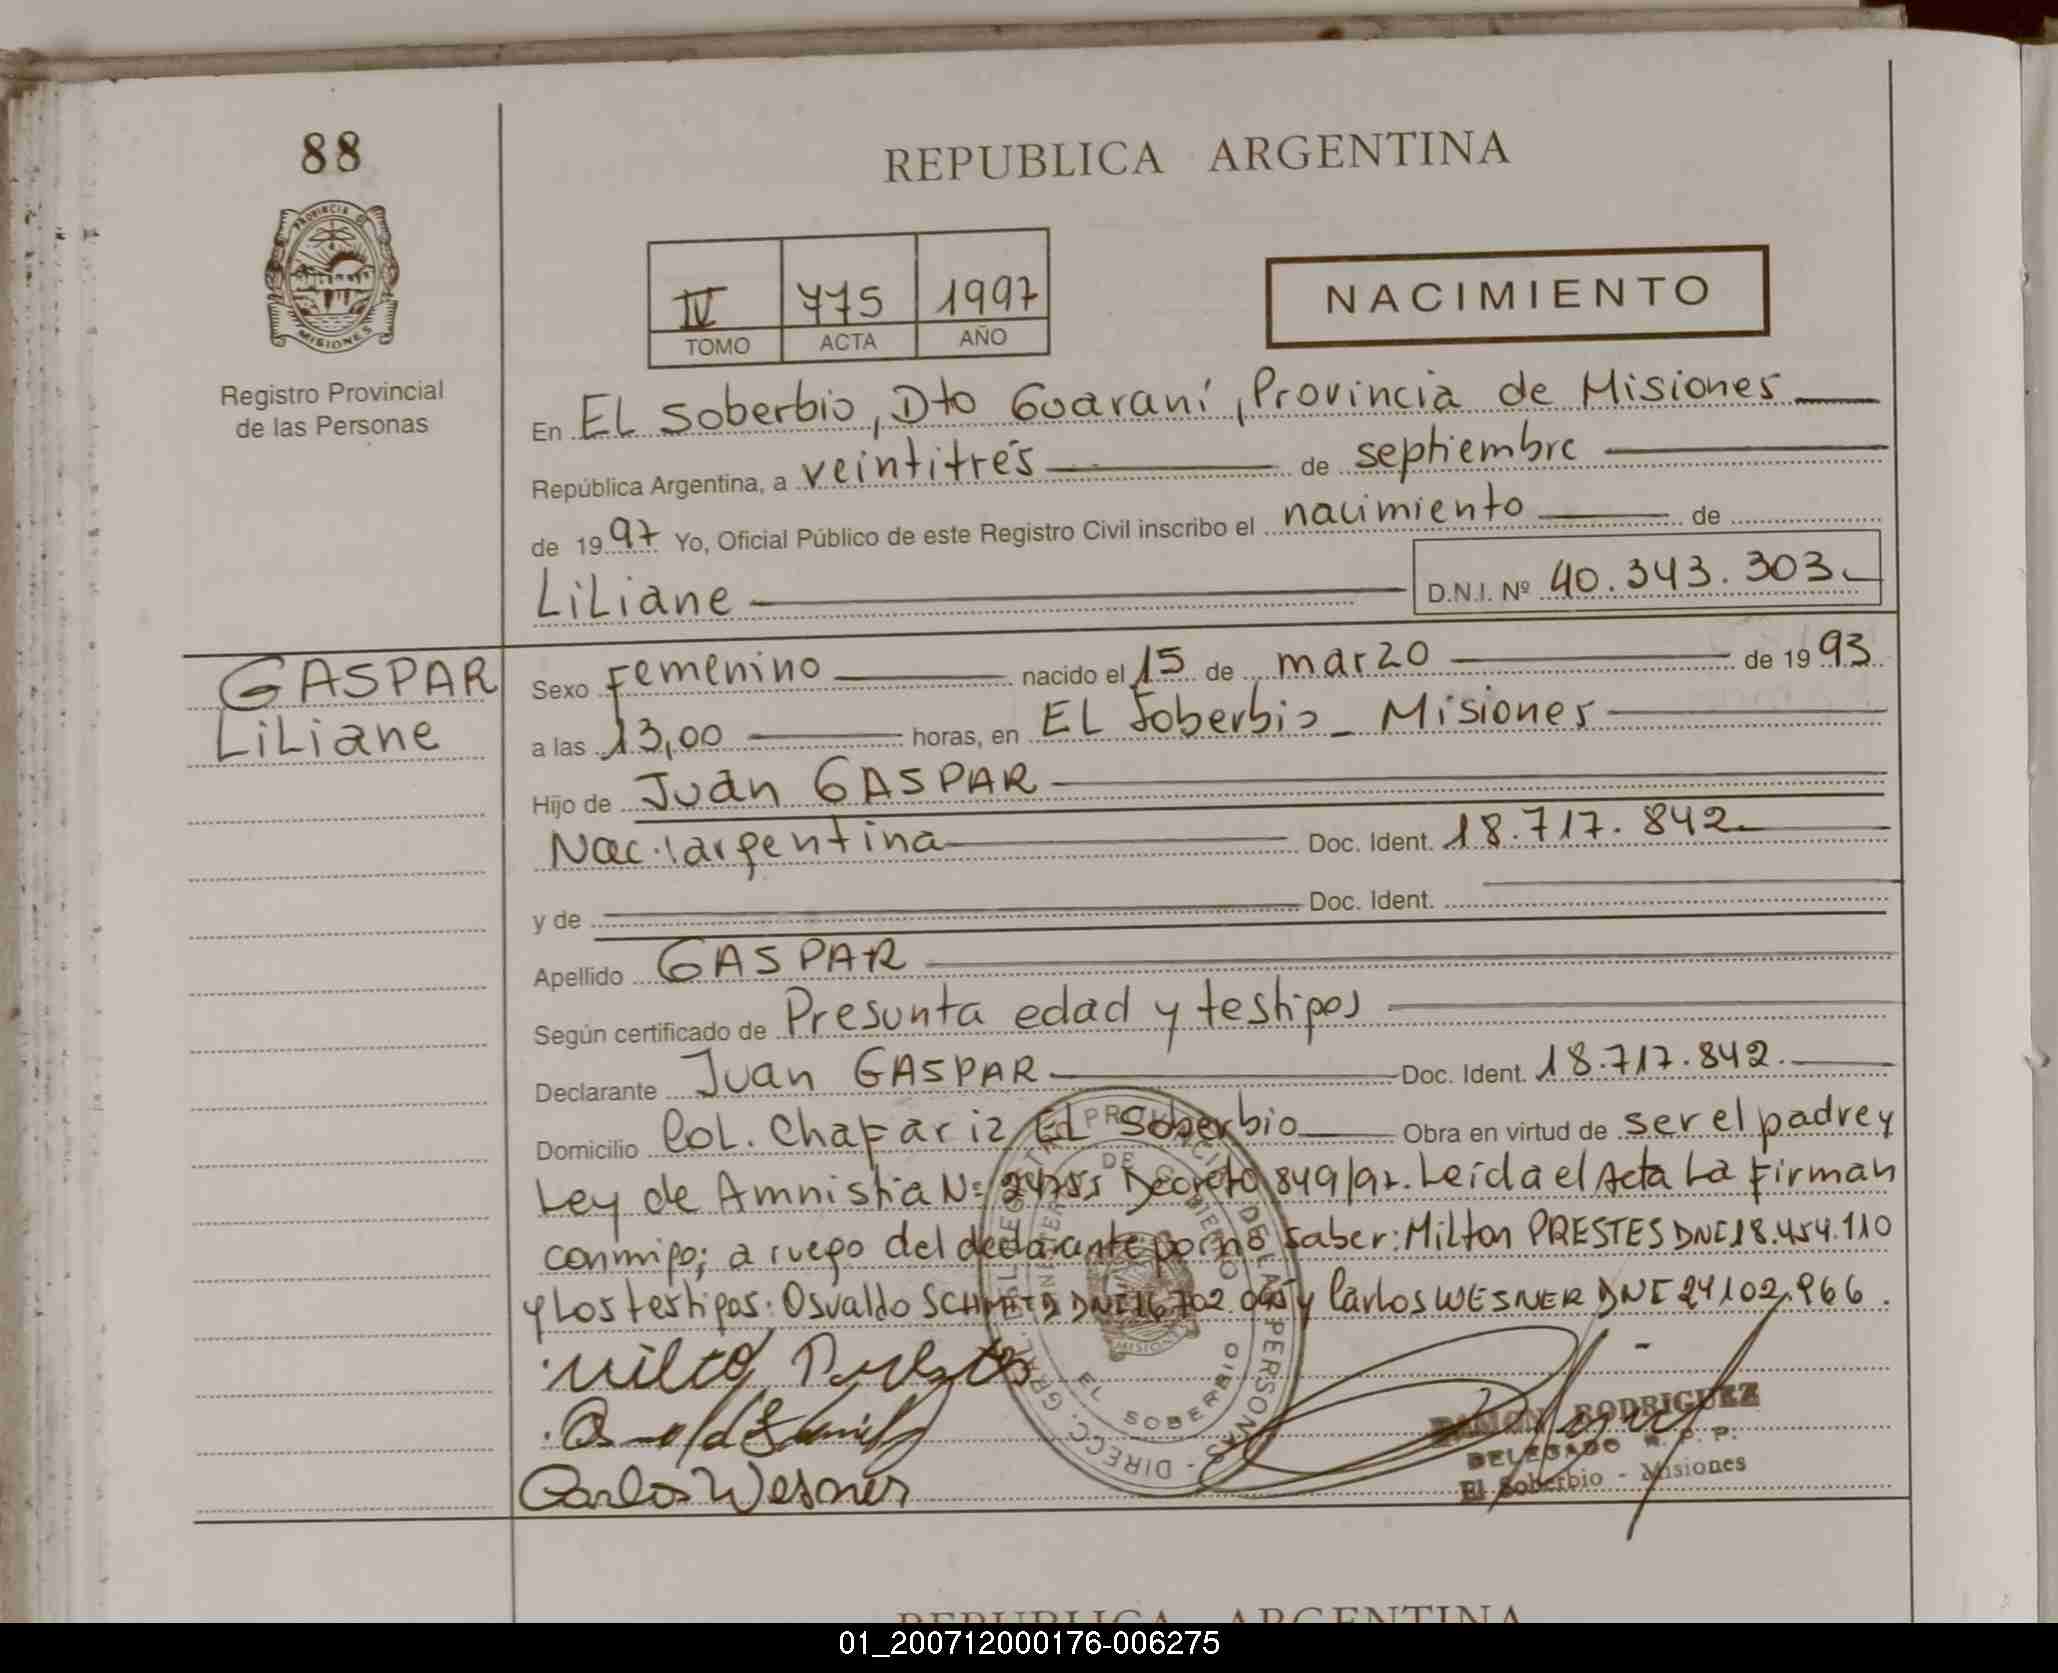 88
REPUBLICA ARGENTINA
PROVINCIA DE
MISIONES
Registro Provincial
de las Personas
IV 775 1997
TOMO ACTA AÑO
NACIMIENTO
En EL Soberbio, Dto Guaraní, Provincia de Misiones
República Argentina, a veintitrés de septiembre
de 1997 Yo, Oficial Público de este Registro Civil inscribo el nacimiento de
LiLiane D.N.I. Nº 40.343.303.-
GASPAR
LiLiane
Sexo Femenino nacido el 15 de marzo de 1993
a las 13,00 horas, en EL Soberbio - Misiones
Hijo de Juan GASPAR
Nac. argentina Doc. Ident. 18.717.842.
y de Doc. Ident.
Apellido GASPAR
Según certificado de Presunta edad y testigos
Declarante Juan GASPAR Doc. Ident. 18.717.842.
Domicilio Col. Chafariz EL Soberbio Obra en virtud de ser el padre y
Ley de Amnistia Nº 24755 Decreto 849/97. Leída el Acta La Firman
conmigo; a ruego del declarante por no saber: Milton PRESTES DNI 18.454.110
y Los testigos: Osvaldo SCHMITD DNI 16.702. y Carlos WESNER DNI 24102.966.
Carlos Wesner
DIRECC. GRAL. REGISTRO PROVINCIAL DE LAS PERSONAS
EL SOBERBIO
RAMON RODRIGUEZ
DELEGADO R. P. P.
El Soberbio - Misiones
REPUBLICA ARGENTINA
01_200712000176-006275